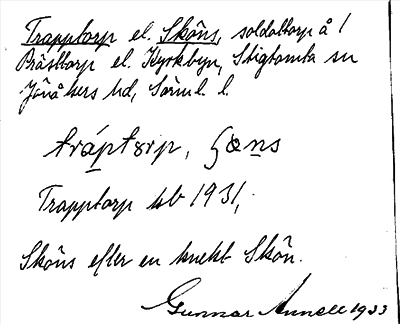 Trapptorp el. Sköns, soldattorp å 1
Prästtorp el. Kyrkbyn, Stigtomta sn
Jönåkers hd, Sörml. l.
tráptɔrp, ʃœns
Trapptorp kb 1931,
Sköns efter en knekt Skön.
Gunnar Annell 1933